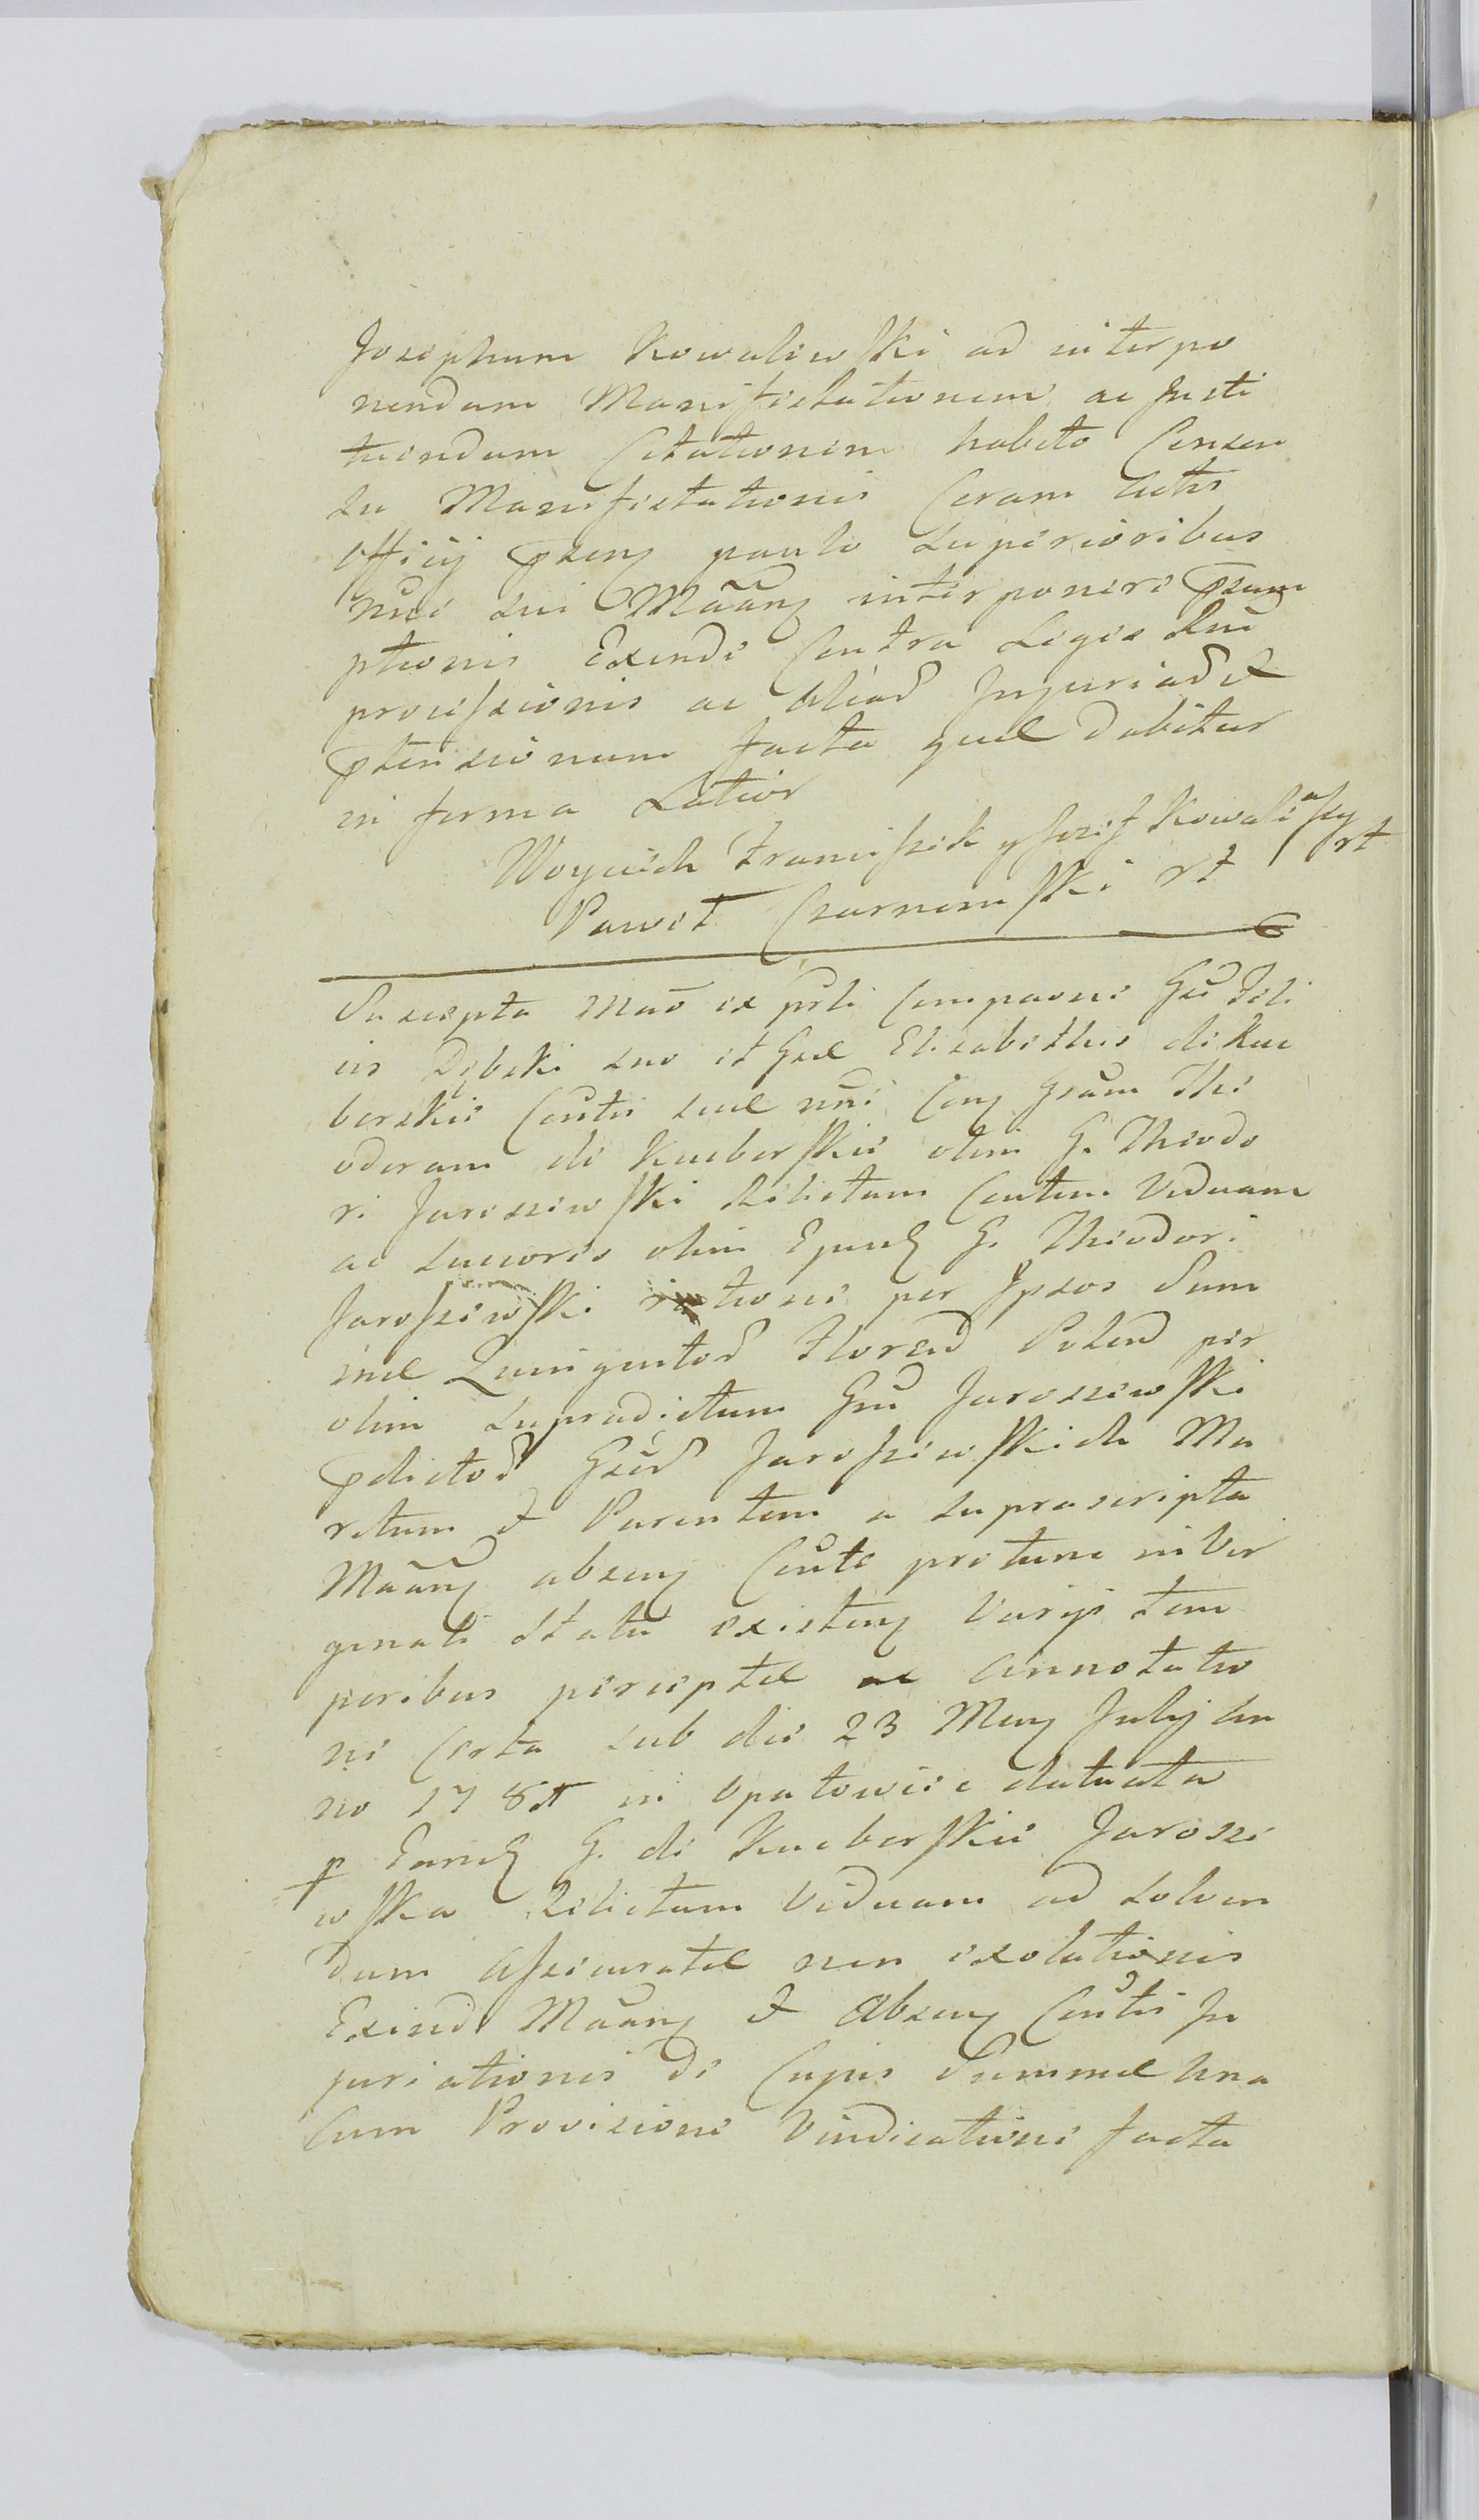 Josephum Kowalewski ad interpo
nendam Manifestationem ac Insti
tuendam Citationem habito Consen
su Manifestationis Coram Actis
Officij pseng paulo superioribus
nūē sui Mãang interponere psum
ptionis Exinde Contra Leges
processionis ac aliad Injuriad et
ptensionum facta quae dabitur
in forma Latior
Woyciech Franciszek y Jozef Kowalewscy
rt
Paweł Czarnomski rt
Suscepta Mãō ex prli Comparne Gsi Feli
cis Dębski suo et Gsae Elisabethis de Kuc
borskie Contis suae nūī Cong Gsam The
odoram de Kucborskie olim G. Theodo
ri Jaroszewski Relictam Contem Viduam
ac sucores olim Ejusd G. Theodori
Jaroszewski tione per Ipsos Sum
mae Quingentod Floren Polon per
olim supradictum Gsm Jaroszewski
pdictod Gsed Jaroszewskich Ma
ritum et Parentem a suprascripta
Mãang abseng Conte pro tunc in Vir
ginali Statu existeng Varijs tem
poribus perceptae ac Annotatio
ne Certa sub die 23 Mens July An
no 178 in Opatowiec datuata
p Eand G. de Kucborskie Jarosze
wska Relictam Viduam ad solven
dum Assecuratae non exolutionis
Exinde Mãang et Abseng Contis In
juriationis de Cujus Summae una
Cum Provisione Vindicatione facta